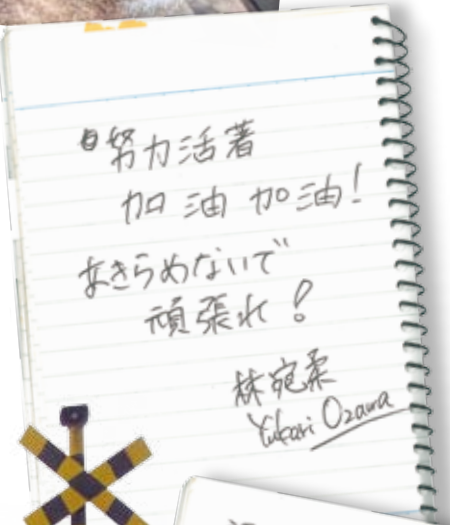 努力活著
加油加油!
あきらめないで
頑張れ!
林宛柔
Yukari Ozawa